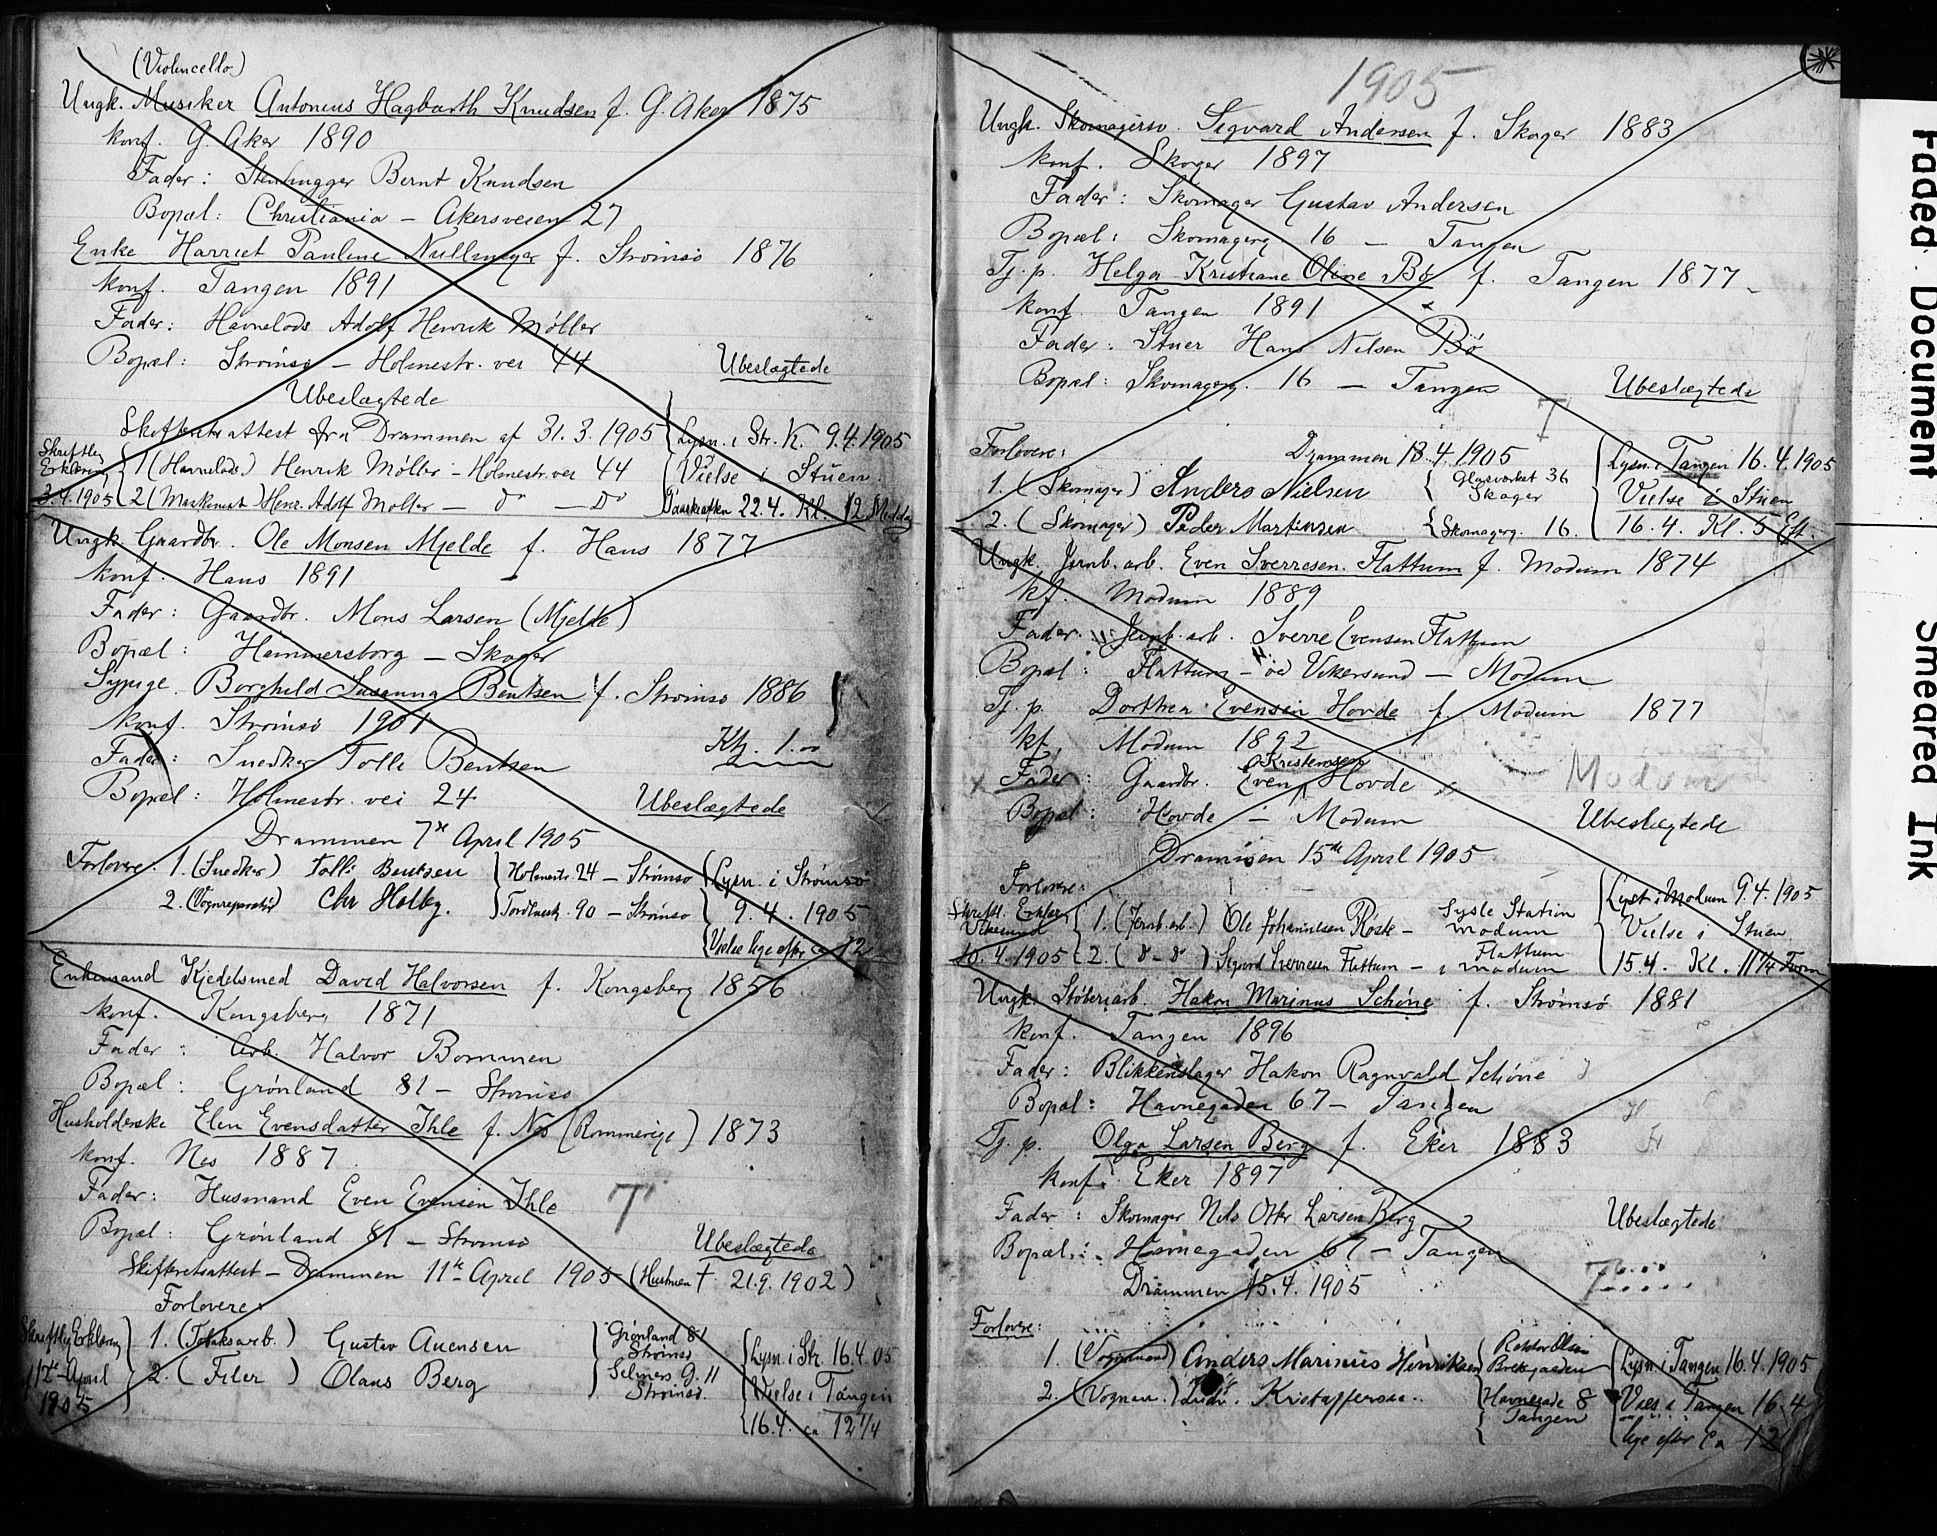 (Violoncello)
Ungk. Musiker Antonius Hagbarth Knudsen f. G. Aker 1875
konf. G. Aker 1890
Fader: Stenhugger Bernt Knudsen
Bopæl: Christiania - Akersveien 27
Enke Harriet Pauline Nullmeyer f. Strømsø 1876
konf. Tangen 1891
Fader: Havnelods Adolf Henrik Møller
Bopæl: Strømsø - Holmestr. vei 44
Ubeslægtede
Ubeslægtede
Skifteretsattest fra Drammen af 31.3.1905
Skriftlig Erklæring 3.4.1905
1 (Havnelods) Henrik Møller - Holmestr. vei 44
2 (Maskinist) Henr. Adolf Møller - Do - Do
Lysn. i Str. K. 9.4.1905
Vielse i Stuen.
Paaskeaften 22.4. Kl. 12 Middag
Ungk. Gaardbr. Ole Monsen Mjelde f. Haus 1877
konf. Haus 1891
Fader: Gaardbr. Mons Larsen (Mjelde)
Bopæl: Hammersborg - Skoger
Sypige Borghild Susanna Bentsen f. Strømsø 1886
konf. Strømsø 1901
Fader: Snedker Tolle Bentsen
Ktg. 1.00
Bopæl: Holmestr. vei 24
Ubeslægtede
Drammen 7de April 1905
Forlovere: 1. (Snedker) Tolle Bentsen Holmestr. 24 - Strømsø
2. (Vognreparatør) Chr Holby. Tordensk. 90 - Strømsø
Lysn. i Strømsø
9.4.1905
Vielse lige efter ca 12
Enkemand Kjedelsmed David Halvorsen f. Kongsberg 1856
konf. Kongsberg 1871
Fader: Arb. Halvor Bommen
Bopæl: Grønland 81 - Strømsø
Husholderske Elen Evensdatter Ihle f. Nes (Rommerige) 1873
konf. Nes 1887
Fader: Husmand Even Evensen Ihle
T
Bopæl: Grønland 81 - Strømsø
Ubeslægtede
Skifteretsattest - Drammen 11te April 1905 (Hustruen † 21.9.1902)
Forlovere:
Skriftlig Erklæring 12te April 1905
1. (Tobaksarb.) Gustav Auensen Grønland 81 Strømsø
2. (Filer) Olaus Berg Selmers G. 11 Strømsø.
Lysn. i Str. 16.4.05
Vielse i Tangen
16.4. ca 12 1/4
1905
Ungk. Skomagersv. Sigvard Andersen f. Skoger 1883
konf. Skoger 1897
Fader: Skomager Gustav Andersen
Bopæl: Skomagerg. 16 - Tangen
Tj. p. Helga Kristiane Oline Bø f. Tangen 1877
konf. Tangen 1891
Fader: Stuer Hans Nilsen Bø
Bopæl: Skomagerg. 16 - Tangen
Ubeslægtede
T
Forlovere: Drammen 13.4.1905
1. (Skomager) Anders Nielsen Glasværket 36 Skoger
2. (Skomager) Peder Martinsen Skomagerg. 16.
Lysn. i Tangen 16.4.1905
Vielse i Stuen
16.4. Kl. 5 Eft.
Ungk. Jernb. arb. Even Sverresen Flattum f. Modum 1874
kf. Modum 1889
Fader: Jernb. arb. Sverre Evensen Flattum
Bopæl: Flattum - ved Vikersund - Modum
Tj. p. Dorthea Evensen Hovde f. Modum 1877
kf. Modum 1892
Kristensen
x Fader: Gaardbr. Even Hovde x
Modum
Bopæl: Hovde - Modum
Ubeslægtede
Drammen 15de April 1905
Forlovere:
Skriftl. Erklær. Vikesund 10.4.1905
1. (Jernb. arb.) Ole Johannesen Røste - Sysle Station Modum
2. (do - do) Sigurd Sverresen Flattum - Flattum i Modum
Lyst i Modum 9.4.1905
Vielse i Stuen
15.4. Kl. 11 1/4 Form
Ungk. Støberiarb. Hakon Marinus Schøne f. Strømsø 1881
konf. Tangen 1896
Fader: Blikkenslager Hakon Ragnvald Schøne
Bopæl: Havnegaden 67 - Tangen
Tj. p. Olga Larsen Berg f. Eker 1883
konf: Eker 1897
Fader: Skomager Nils Otto Larsen Berg
Ubeslægtede
Bopæl: Havnegaden 67 - Tangen
T
Drammen 15.4.1905
Forlovere:
1. (Vognmand) Anders Marinius Henriksen Brekgaarden
2. (Vognm.) Ludv. Kristoffersen. Havnegade 8 Tangen
Lysn. i Tangen 16.4.1905
Vies i Tangen 16.4
lige efter Ca 12
Faded Document
Smeared Ink